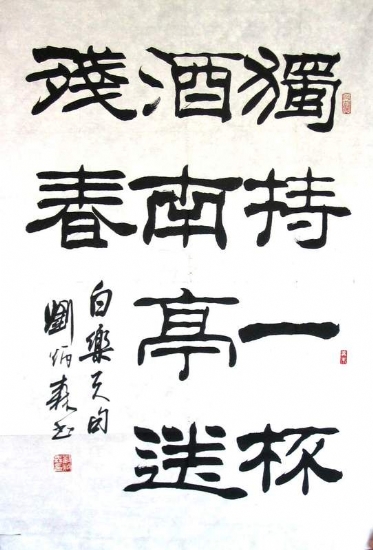 獨持一杯
酒南亭送
殘春
白樂天句
劉炳森書